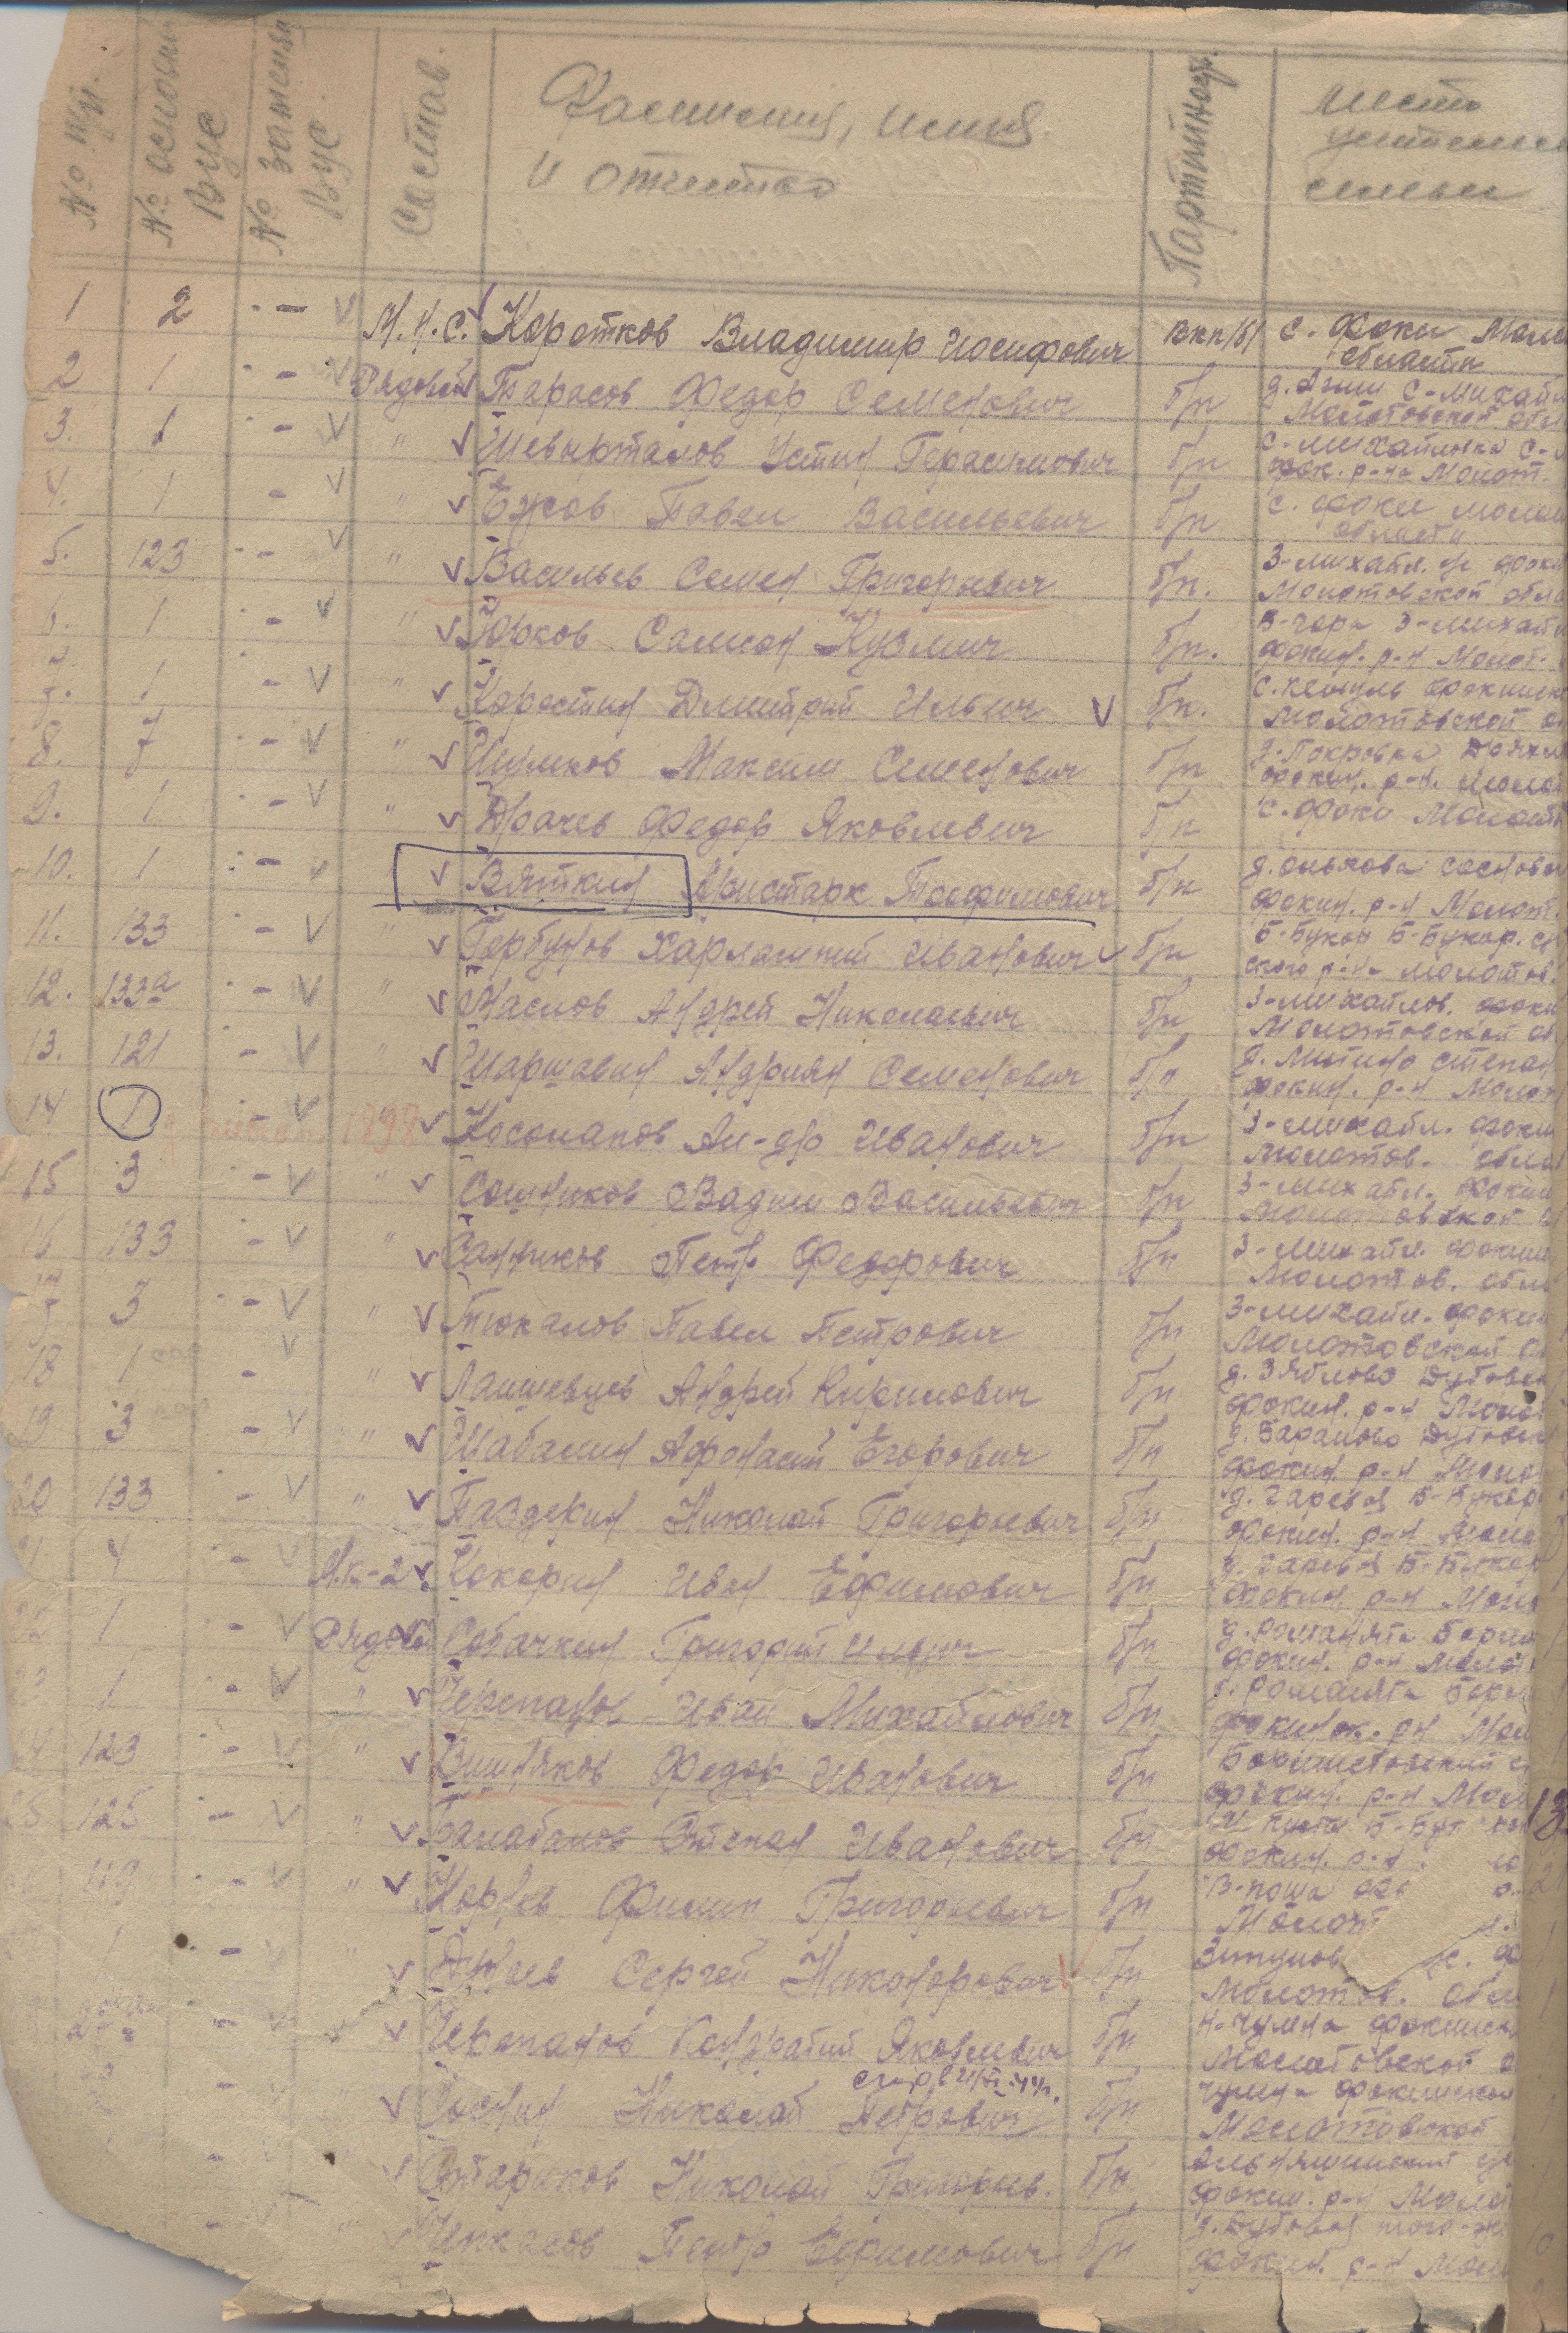 № п/п. № основн. ВУС № замещ. ВУС. Состав. Фамилия, имя и отчество Партийност. место жительс семьи
1 2 - М.н.с. Коротков Владимир Иосифович ВКП/б/ с. Фоки Моло
области
2 1 - Рядовой Тарасов Федор Семенович б/п д. С-Михайл
Молотовской обл
3. 1 - " Шевырталов Устин Герасимович б/п с-Михайловка С-
Фок. р-на Молот.
4. 1 - " Ежов Павел Васильевич б/п с. Фоки Молот
области
5. 123 - " Васильев Семен Григорьевич б/п. З-Михайл. Фоки
Молотовской обла
6. 1 - " Юрков Самсон Кузмич б/п. В-гора З-Михайл
Фокин. р-н Молот.
7. 1 - " Коростин Дмитрий Ильич б/п. с. Кемуль Фокинск
Молотовской о
8. 7 - " Шумков Максим Семенович б/п д. Покровка
Фокин. р-н. Моло
9. 1 - " Драчев Федор Яковлевич б/п с. Фоки Молот
10. 1 - Вяткин Аристарк Трофимович б/п д. Ольхова Сосновс
Фокин. р-н Молот.
11. 133 - " Горбунов Харлампий Иванович б/п Б-Букор Б-Букор. с
ского р-на Молотов.
12. 133а - " Маслов Андрей Николаевич б/п З-Михайлов. Фоки
Молотовской об
13. 121 - " Шаршавин Андриян Семенович б/п д. Митино Степан
Фокин. р-н Молот
14 1 - 1898 Косолапов Ал-др Иванович б/п З-Михайл. Фоки
Молотов. обла
15 3 - " Сошников Вадим Васильевич б/п З-Михайл. Фоки
Молотовской
16 133 - " Санников Петр Федорович б/п З-Михайл. Фокин
Молотов. обл
17 3 - " Тюкалов Павел Петрович б/п З-Михайл. Фокин
Молотовской
18 1 - " Лаишевцев Андрей Кирилович б/п д. Зяблово Дубовск
Фокин. р-н Молот
19 3 - " Шабалин Афонасий Егорович б/п д. Бараново Дубовск
Фокин. р-н Моло
20 133 - " Паздекин Николай Григорьевич б/п д. Гаревая Б-Букор
Фокин. р-н Моло
21 4 - М.к-2 Кокорин Иван Ефимович б/п д. Гаревая Б-Букор
Фокин. р-н Моло
22 1 - Рядовой Собачкин Григорий Ильич б/п д. Романята Борм
Фокин. р-н Молот
23 1 - " Черепанов Иван Михайлович б/п д. Романята
Фокинск. р-н Мол
24 123 - " Вишняков Федор Иванович б/п
Фокин. р-н Мол 13
25 125 - " Балабанов Степан Иванович б/п Б-Бук
Фокин. р-н
119 - " Корнев Филип Григорьевич б/п В-Поша
Молот
1 - " Дунаев Сергей Никонорович б/п
Молотов. обл
- Черепанов Кондратий Яковлевич б/п Н-Чумна Фокинск
Молотовской о
- " Соснин Николай Петрович б/п Чумна Фокинской
Молотовской
Стариков Николай Григорьев. б/п Альняшинский
Фокин. р-н Молот
- " Чикасов Петр Ефимович б/п д. Дубовая того-же
Фокин. р-н Моло